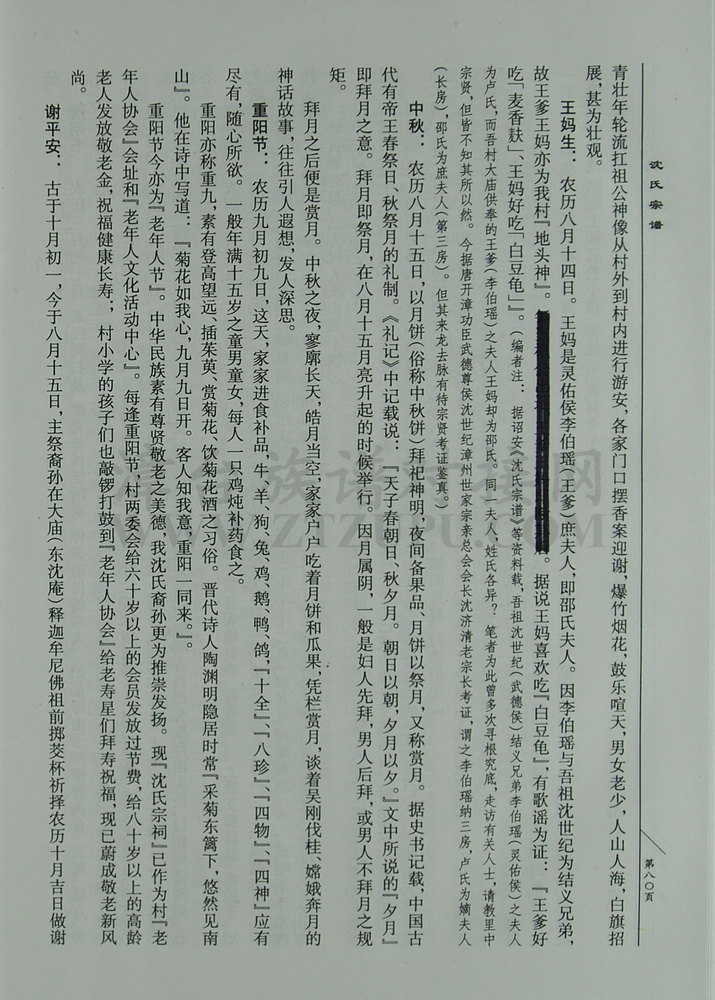 沈氏宗谱
第八〇页
青壮年轮流扛祖公神像从村外到村内进行游安，各家门口摆香案迎谢，爆竹烟花，鼓乐喧天，男女老少，人山人海，白旗招
展，甚为壮观。
王妈生：农历八月十四日。王妈是灵佑侯李伯瑶（王爹）庶夫人，即邵氏夫人。因李伯瑶与吾祖沈世纪为结义兄弟，
故王爹王妈亦为我村『地头神』。据说王妈喜欢吃『白豆龟』，有歌谣为证：『王爹好
吃「麦香麸」、王妈好吃「白豆龟」』。（编者注：据诏安《沈氏宗谱》等资料载，吾祖沈世纪（武德侯）结义兄弟李伯瑶（灵佑侯）之夫人
为卢氏，而吾村大庙供奉的王爹（李伯瑶）之夫人王妈却为邵氏。同一夫人，姓氏各异？笔者为此曾多次寻根究底，走访有关人士，请教里中
宗贤，但皆不知其所以然。今据唐开漳功臣武德尊侯沈世纪漳州世家宗亲总会会长沈济清老宗长考证，谓之李伯瑶纳三房，卢氏为嫡夫人
（长房），邵氏为庶夫人（第三房）。但其来龙去脉有待宗贤考证鉴真。）
中秋：农历八月十五日，以月饼（俗称中秋饼）拜祀神明，夜间备果品、月饼以祭月，又称赏月。据史书记载，中国古
代有帝王春祭日、秋祭月的礼制。《礼记》中记载说：『天子春朝日、秋夕月。朝日以朝，夕月以夕。』文中所说的『夕月』
即拜月之意。拜月即祭月，在八月十五月亮升起的时候举行。因月属阴，一般是妇人先拜，男人后拜，或男人不拜月之规
矩。
拜月之后便是赏月。中秋之夜，寥廓长天，皓月当空，家家户户吃着月饼和瓜果，凭栏赏月，谈着吴刚伐桂、嫦娥奔月的
神话故事，往往引人遐想，发人深思。
重阳节：农历九月初九日，这天，家家进食补品，牛、羊、狗、兔、鸡、鹅、鸭、鸽，『十全』、『八珍』、『四物』、『四神』应有
尽有，随心所欲。一般年满十五岁之童男童女，每人一只鸡炖补药食之。
重阳亦称重九，素有登高望远、插茱萸、赏菊花、饮菊花酒之习俗。晋代诗人陶渊明隐居时常『采菊东篱下，悠然见南
山』。他在诗中写道：『菊花如我心，九月九日开。客人知我意，重阳一同来。』。
重阳节今亦为『老年人节』。中华民族素有尊贤敬老之美德，我沈氏裔孙更为推崇发扬。现『沈氏宗祠』已作为村『老
年人协会』会址和『老年人文化活动中心』。每逢重阳节，村两委会给六十岁以上的会员发放过节费，给八十岁以上的高龄
老人发放敬老金，祝福健康长寿；，村小学的孩子们也敲锣打鼓到『老年人协会』给老寿星们拜寿祝福，现已蔚成敬老新风
尚。
谢平安：古于十月初一，今于八月十五日，主祭裔孙在大庙（东沈庵）释迦牟尼佛祖前掷茭杯祈择农历十月吉日做谢